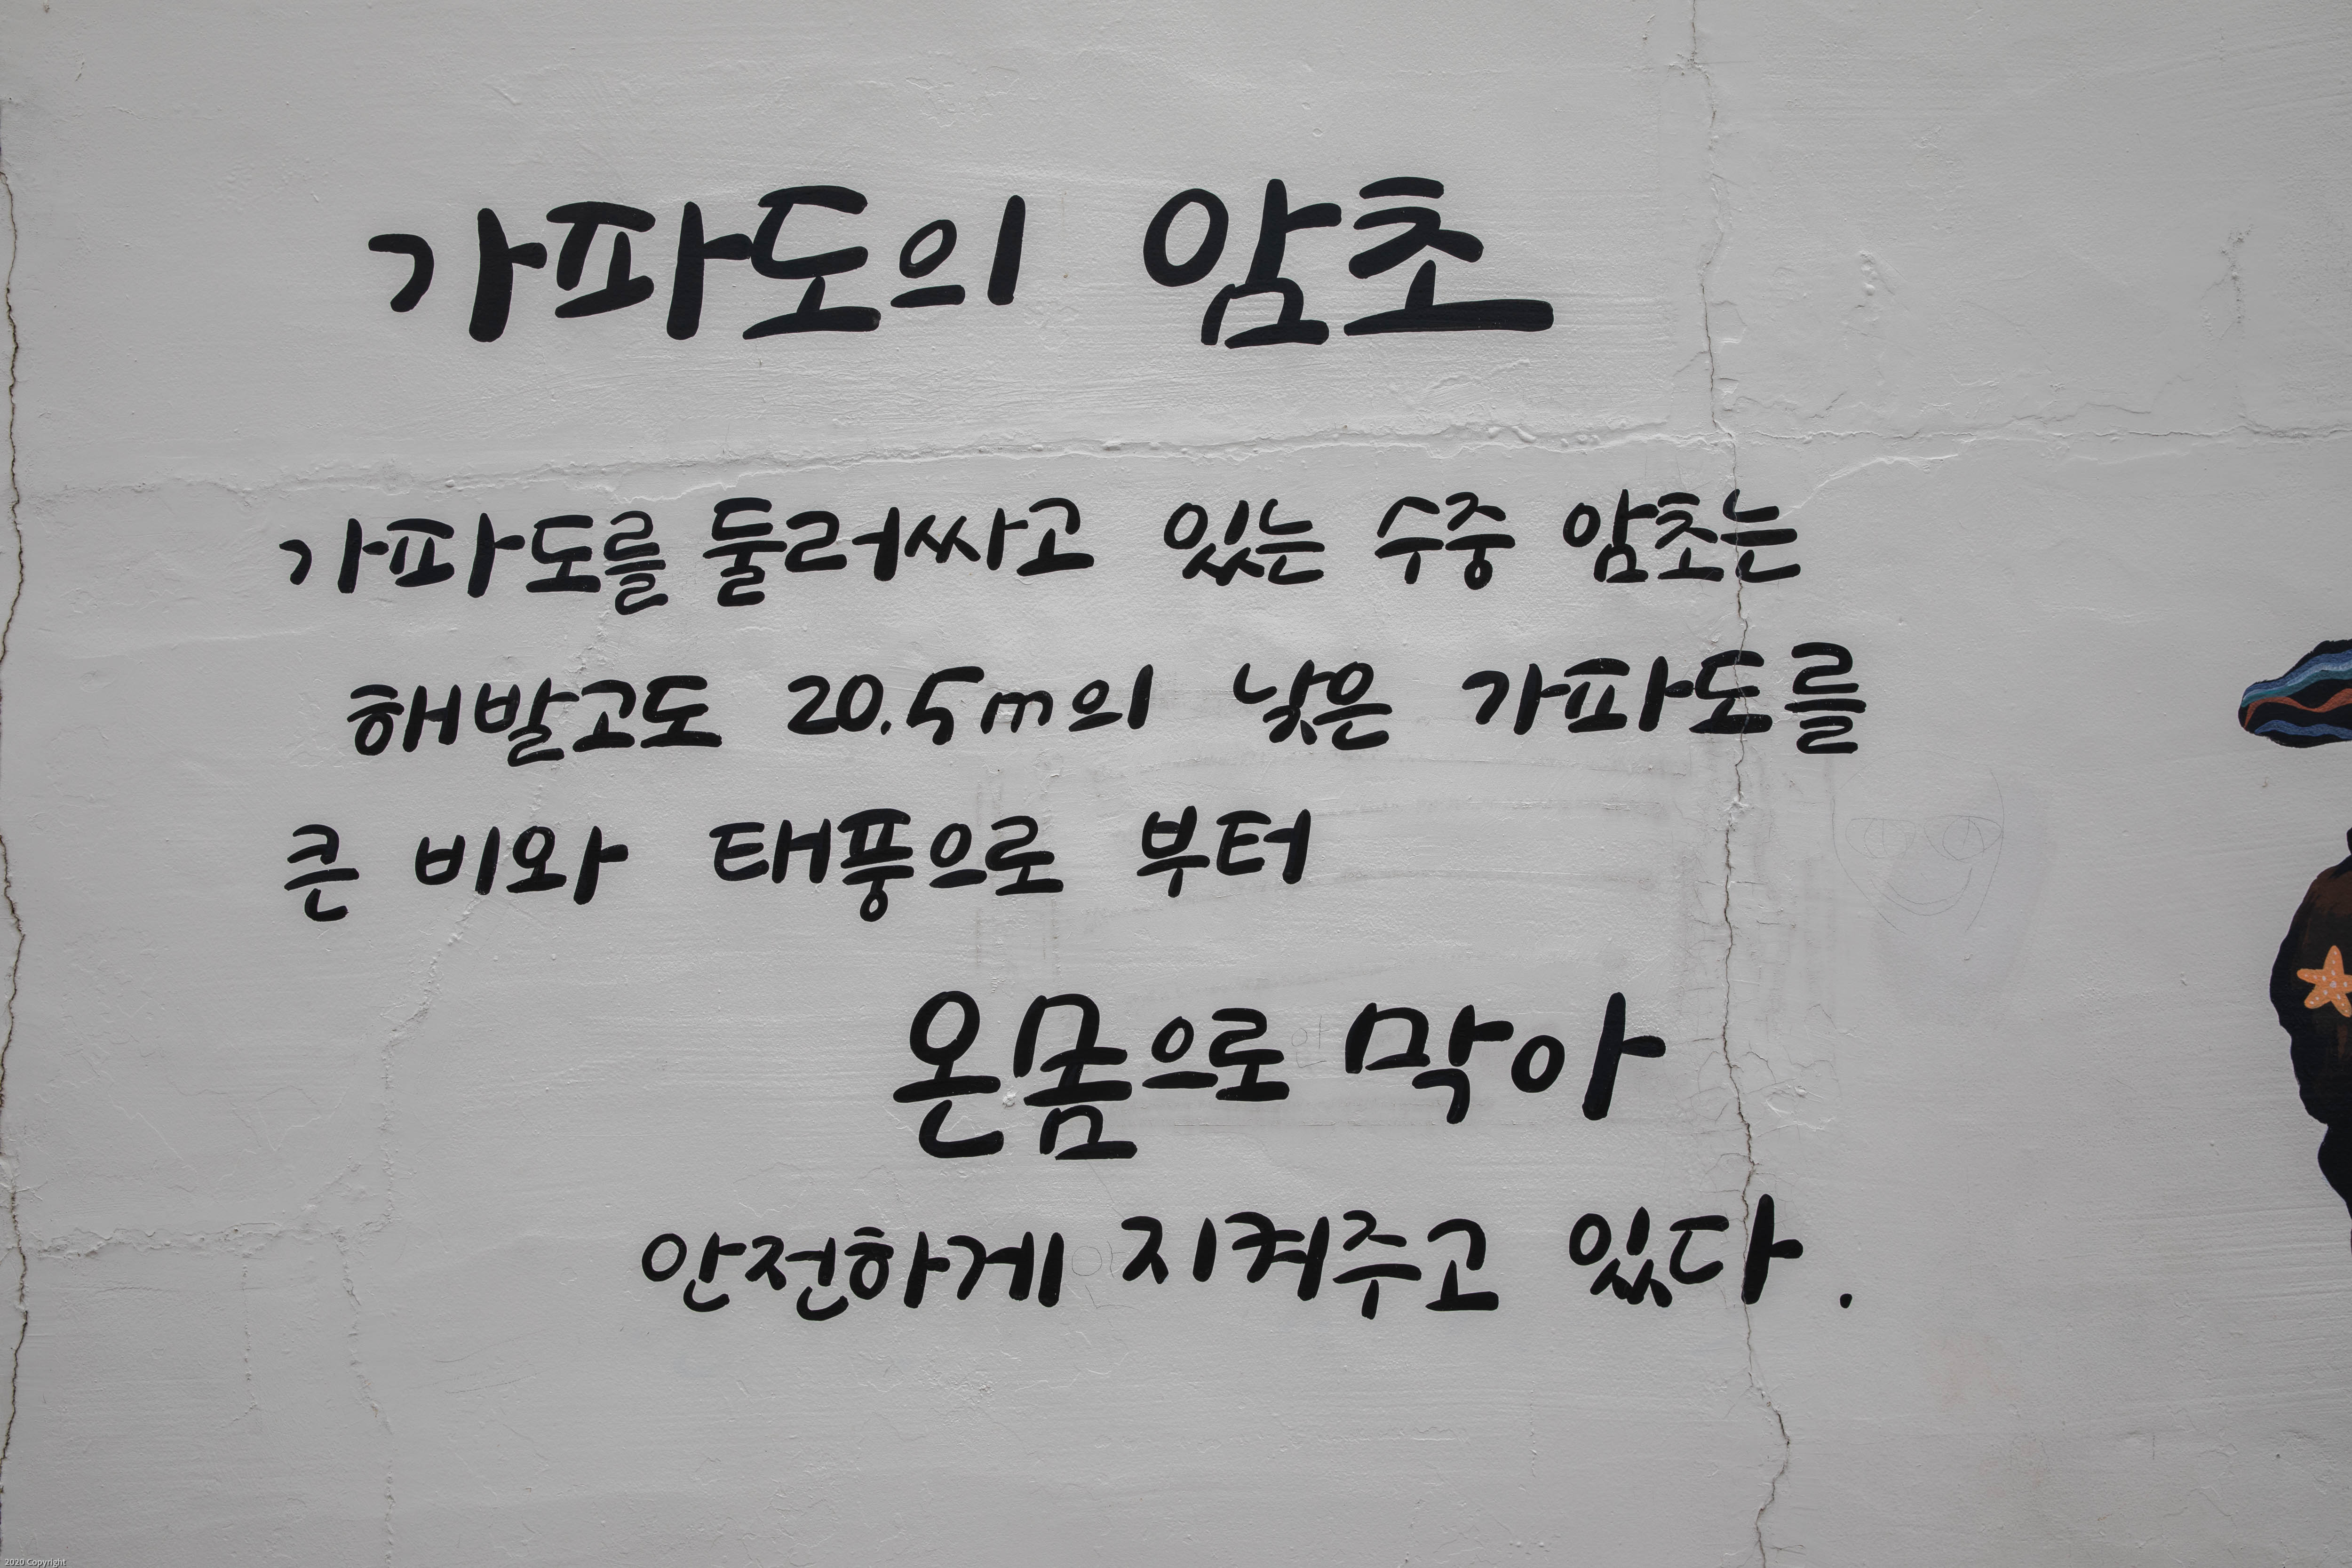 가파도의 암초
가파도를 둘러싸고 있는 수중 암초는
해발고도 20.5m의 낮은 가파도를
큰 비와 태풍으로 부터
온몸으로 막아
안전하게 지켜주고 있다.
2020 Copyright